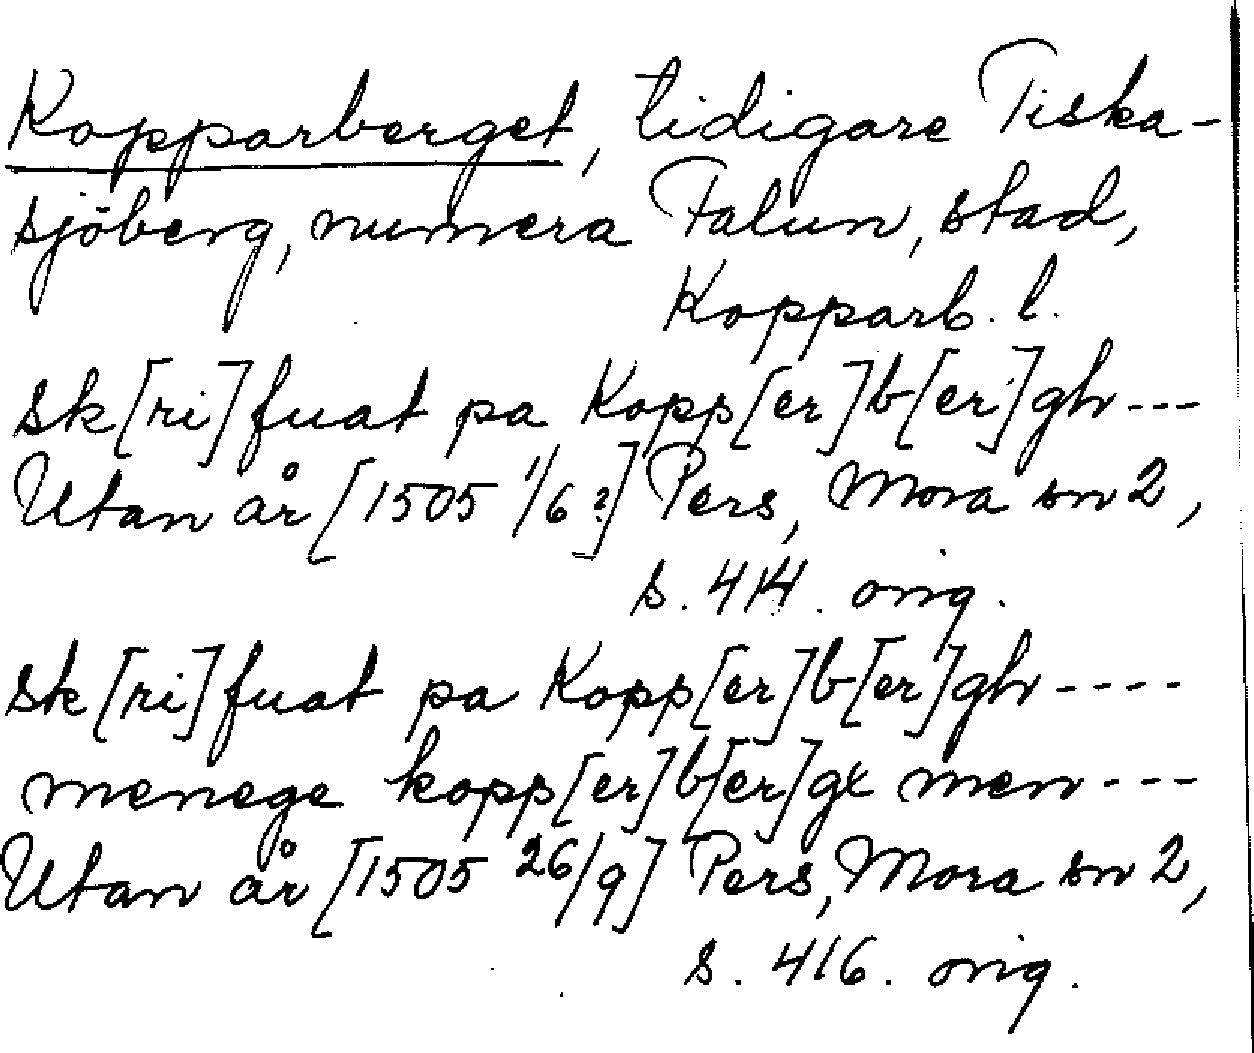 Kopparberget, tidigare Tiska-
sjöberg, numera Falun, stad,
Kopparb. l.
sk[ri]fuat pa Kopp[er]b[er]gh ---
Utan år [1505 1/6?] Pers, Mora sn 2,
s. 414. orig.
sk[ri]fuat pa Kopp[er]b[er]gh ----
menege kopp[er]b[er]gx men ---
Utan år [1505 26/9] Pers, Mora sn 2,
s. 416. orig.